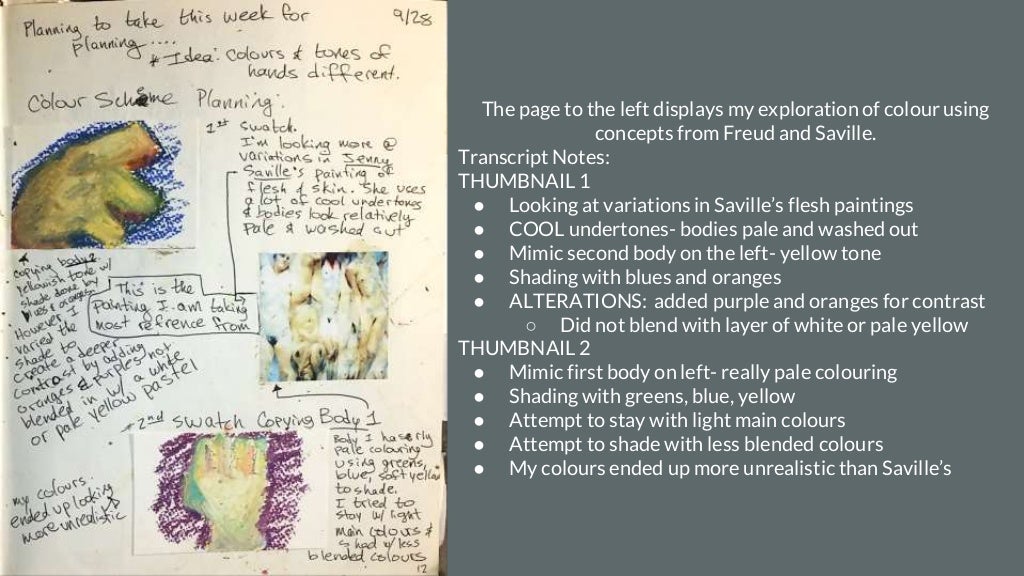 Planning to take this week for
planning....
9/28
* Idea: Colours & tones of
hands different.
Colour Scheme Planning:
1st swatch.
I'm looking more @
variations in Jenny
Saville's painting of
flesh & skin. She uses
a lot of cool undertones
& bodies look relatively
pale & washed out
copying body 2
yellowish tone w/
shade done by
blues & oranges
However I
varied the
shade to
create a deeper
contrast by adding
oranges & purples not
blended in w/ a white
or pale yellow pastel
This is the
painting I am taking
most refrence from
* 2nd swatch Copying Body 1
Body 1 has rly
pale colouring
using greens,
blue, soft yellow
to shade.
I tried to
stay w/ light
main colours &
shad w/ less
blended colours
my colours
ended up looking
more unrealistic
12
The page to the left displays my exploration of colour using
concepts from Freud and Saville.
Transcript Notes:
THUMBNAIL 1
● Looking at variations in Saville's flesh paintings
● COOL undertones- bodies pale and washed out
● Mimic second body on the left- yellow tone
● Shading with blues and oranges
● ALTERATIONS: added purple and oranges for contrast
○ Did not blend with layer of white or pale yellow
THUMBNAIL 2
● Mimic first body on left- really pale colouring
● Shading with greens, blue, yellow
● Attempt to stay with light main colours
● Attempt to shade with less blended colours
● My colours ended up more unrealistic than Saville's